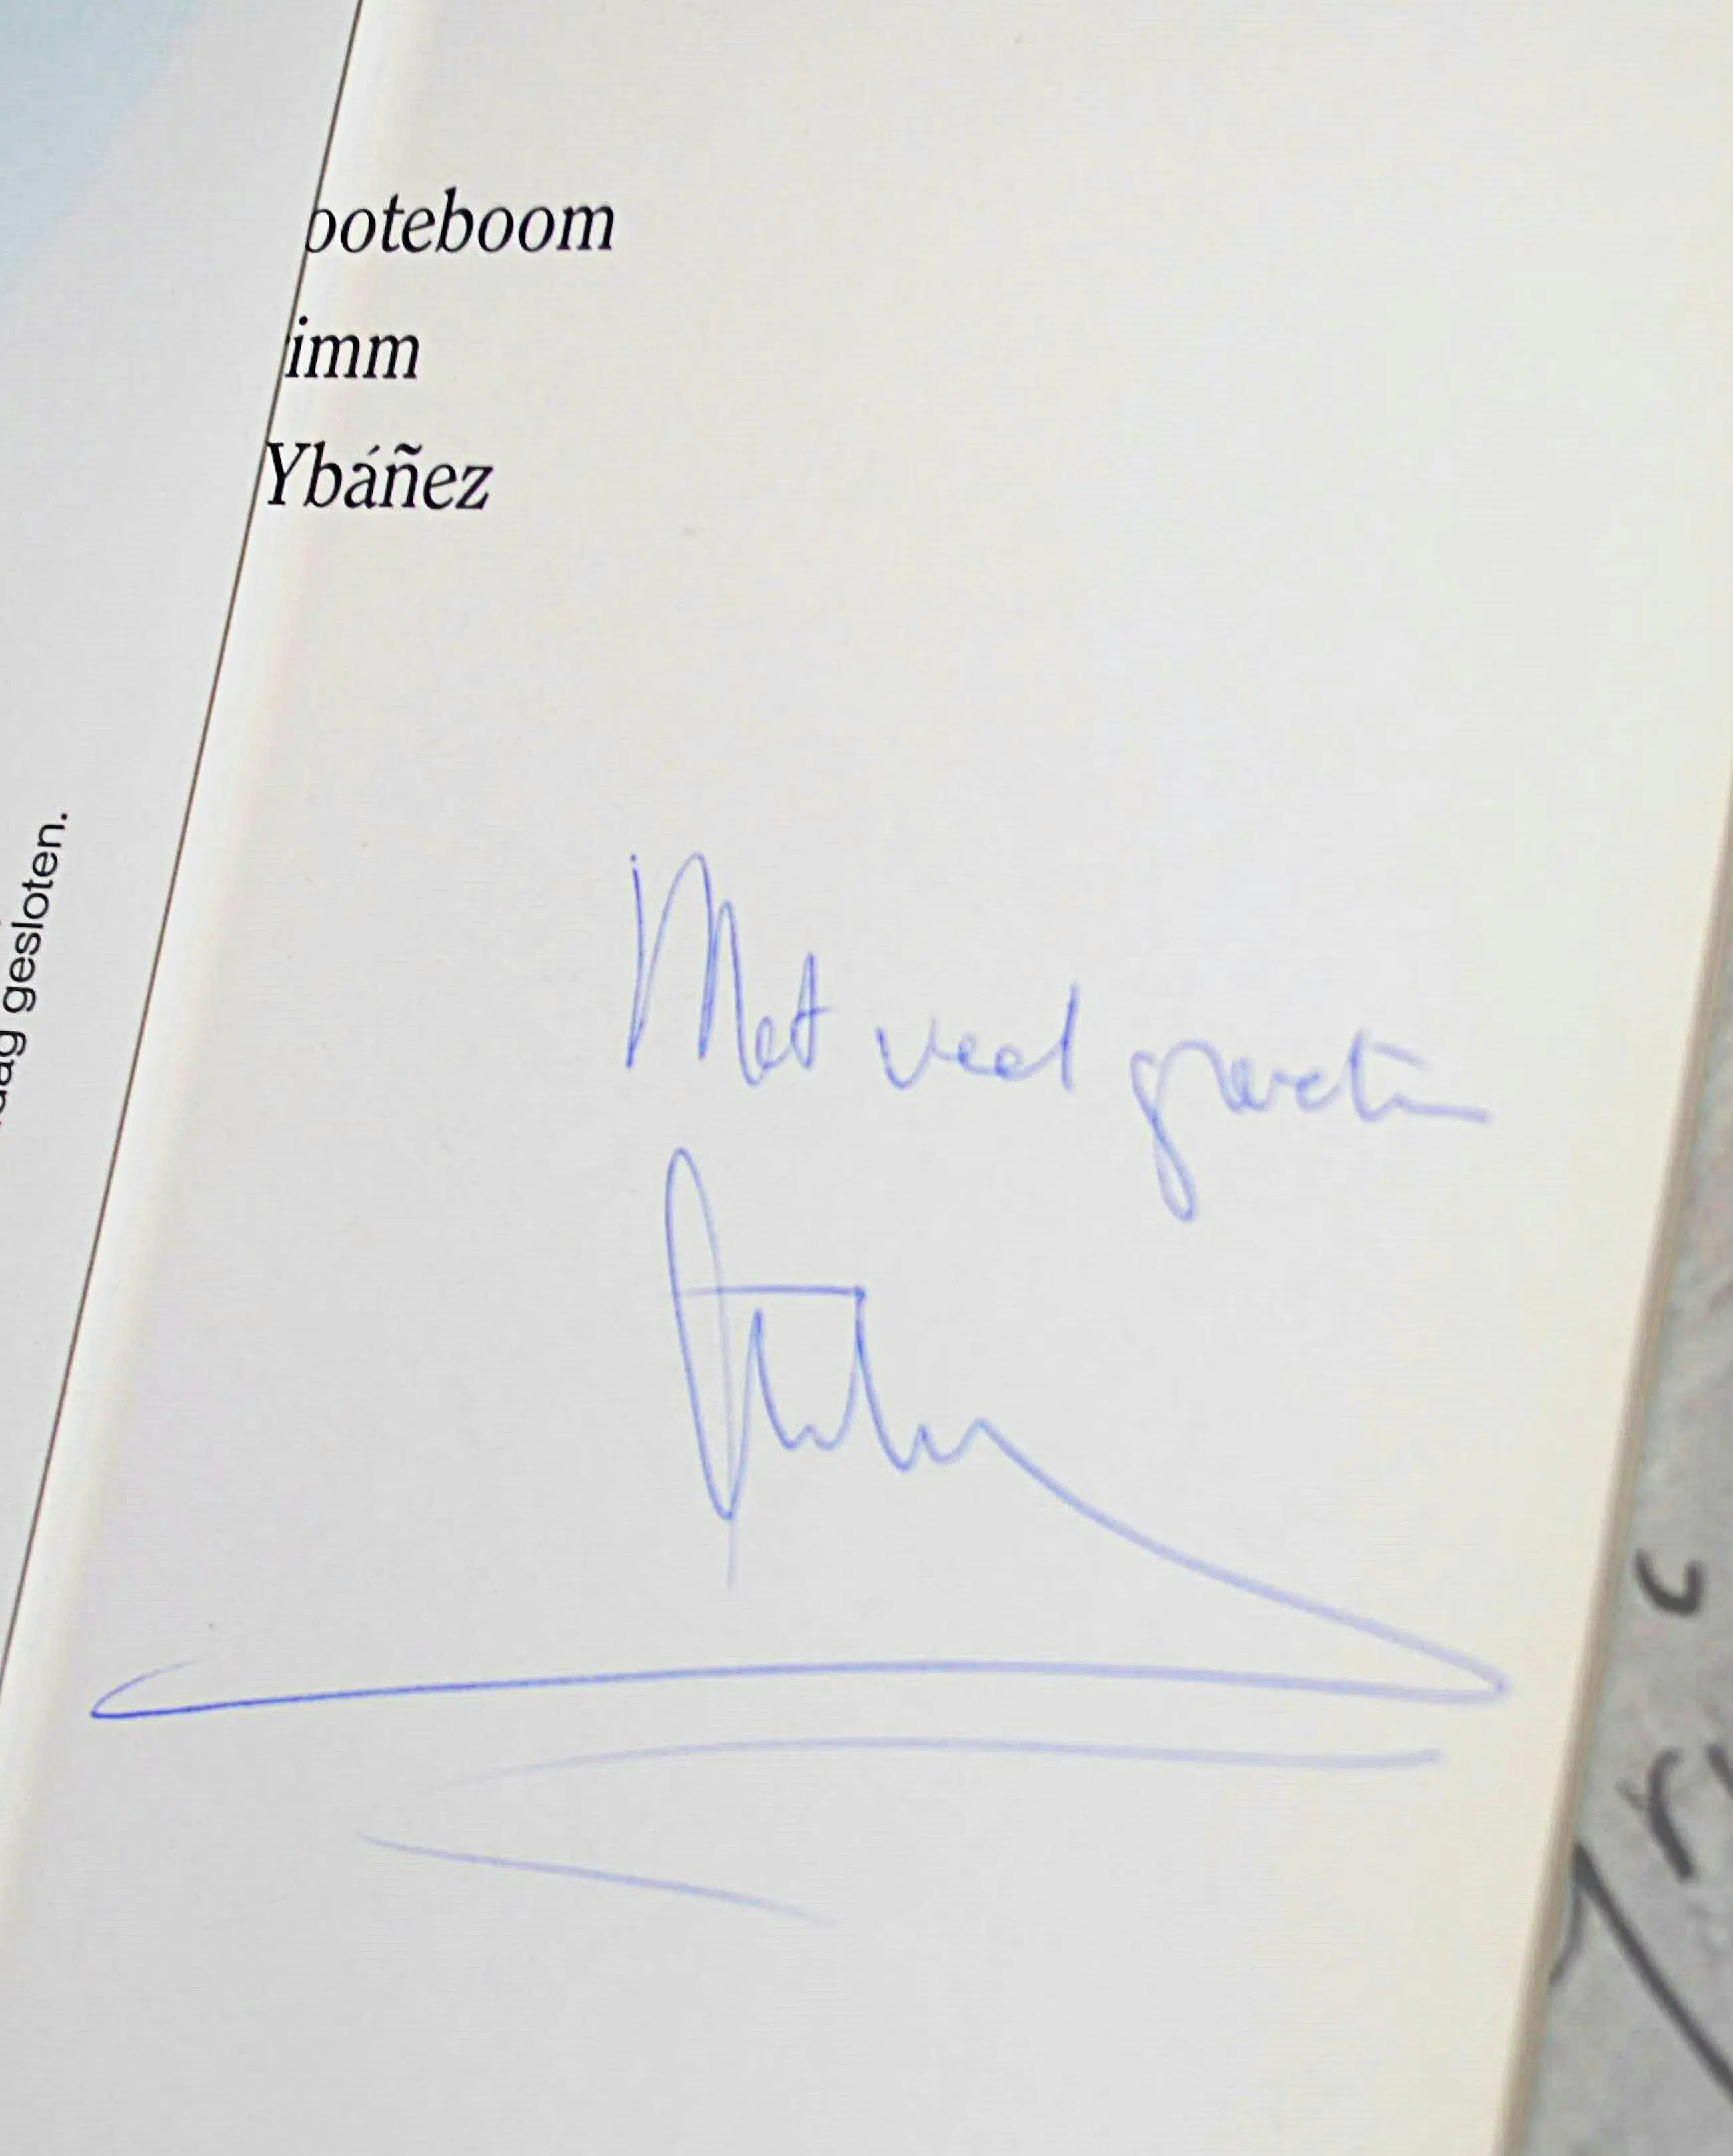 ooteboom
imm
Ybáñez
dag gesloten.
Met veel groeten